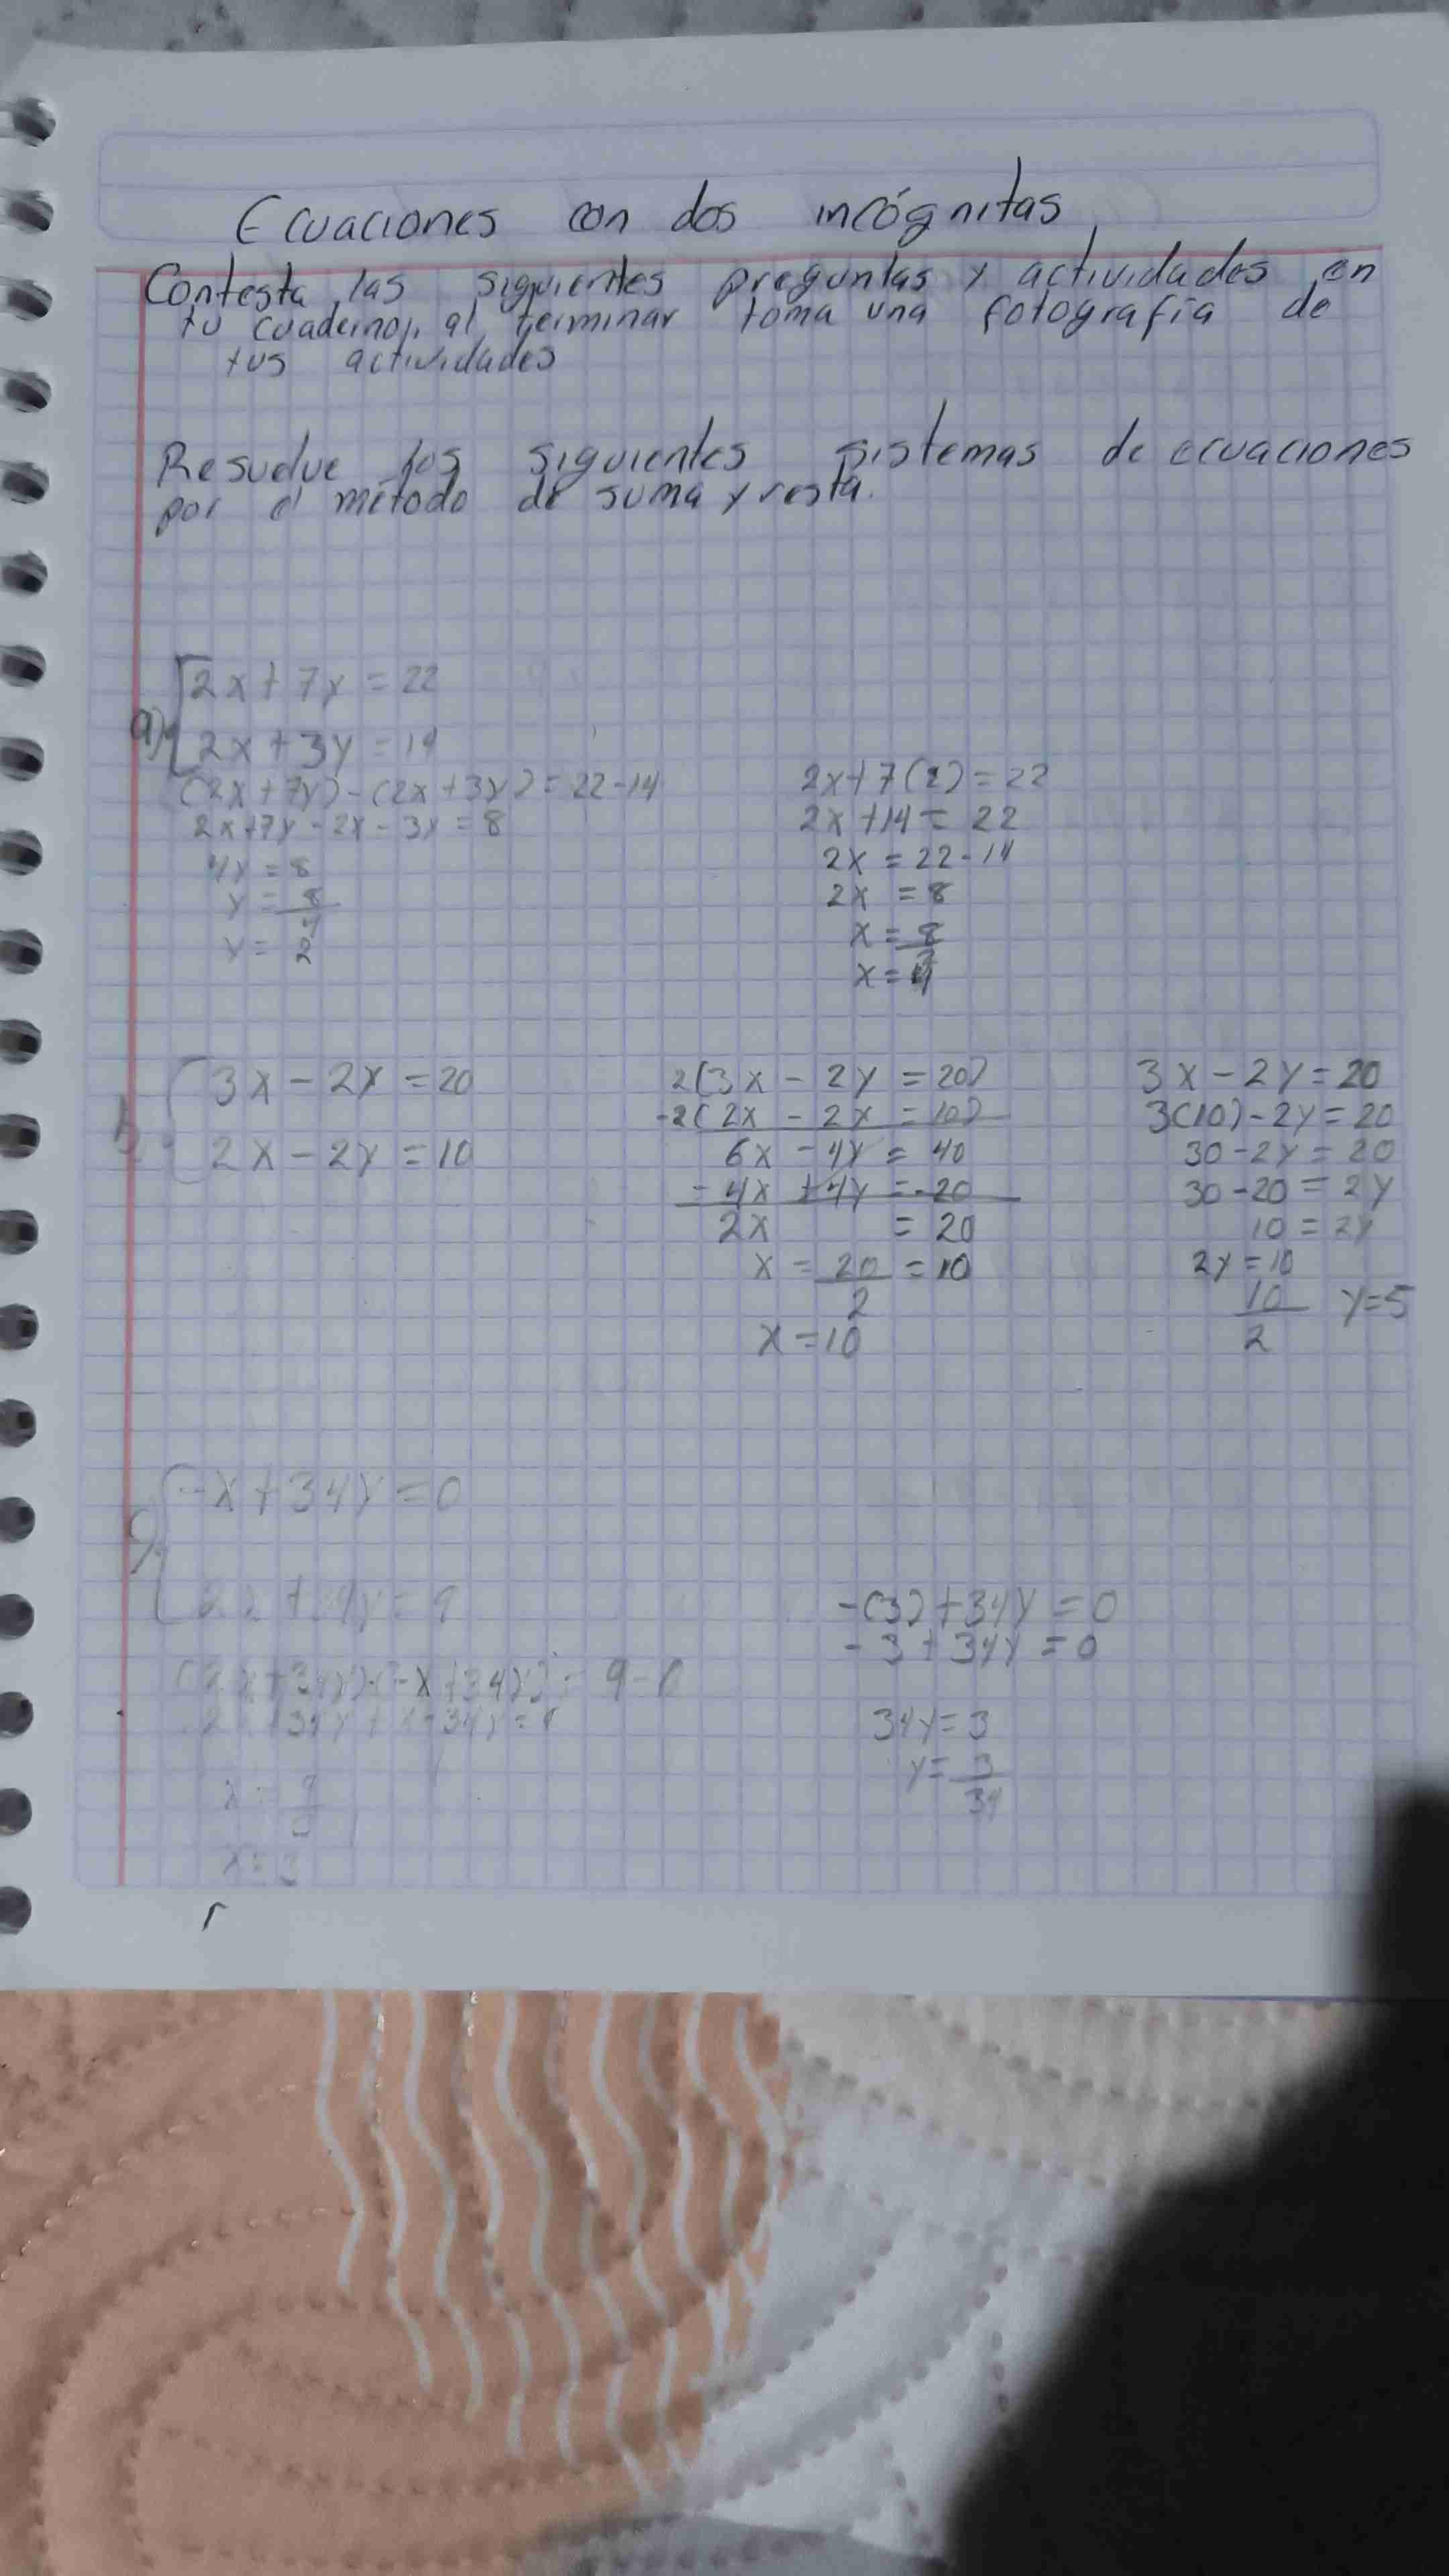 Ecuaciones con dos incógnitas
Contesta las siguientes preguntas y actividades en
tu cuaderno, al terminar toma una fotografía de
tus actividades
Resuelve los siguientes sistemas de ecuaciones
por el método de suma y resta.
a)
2x + 7y = 22
2x + 3y = 14
(2x + 7y) - (2x + 3y) = 22 - 14
2x + 7y - 2x - 3y = 8
4y = 8
y = 8/4
y = 2
2x + 7(2) = 22
2x + 14 = 22
2x = 22 - 14
2x = 8
x = 8/2
x = 4
b
3x - 2y = 20
2x - 2y = 10
2(3x - 2y = 20)
-2(2x - 2y = 10)
6x - 4y = 40
-4x + 4y = -20
2x = 20
x = 20/2 = 10
x = 10
3x - 2y = 20
3(10) - 2y = 20
30 - 2y = 20
30 - 20 = 2y
10 = 2y
2y = 10
10/2 y = 5
-x + 34y = 0
-(3) + 34y = 0
-3 + 34y = 0
34y = 3
y = 3/34
x = 3